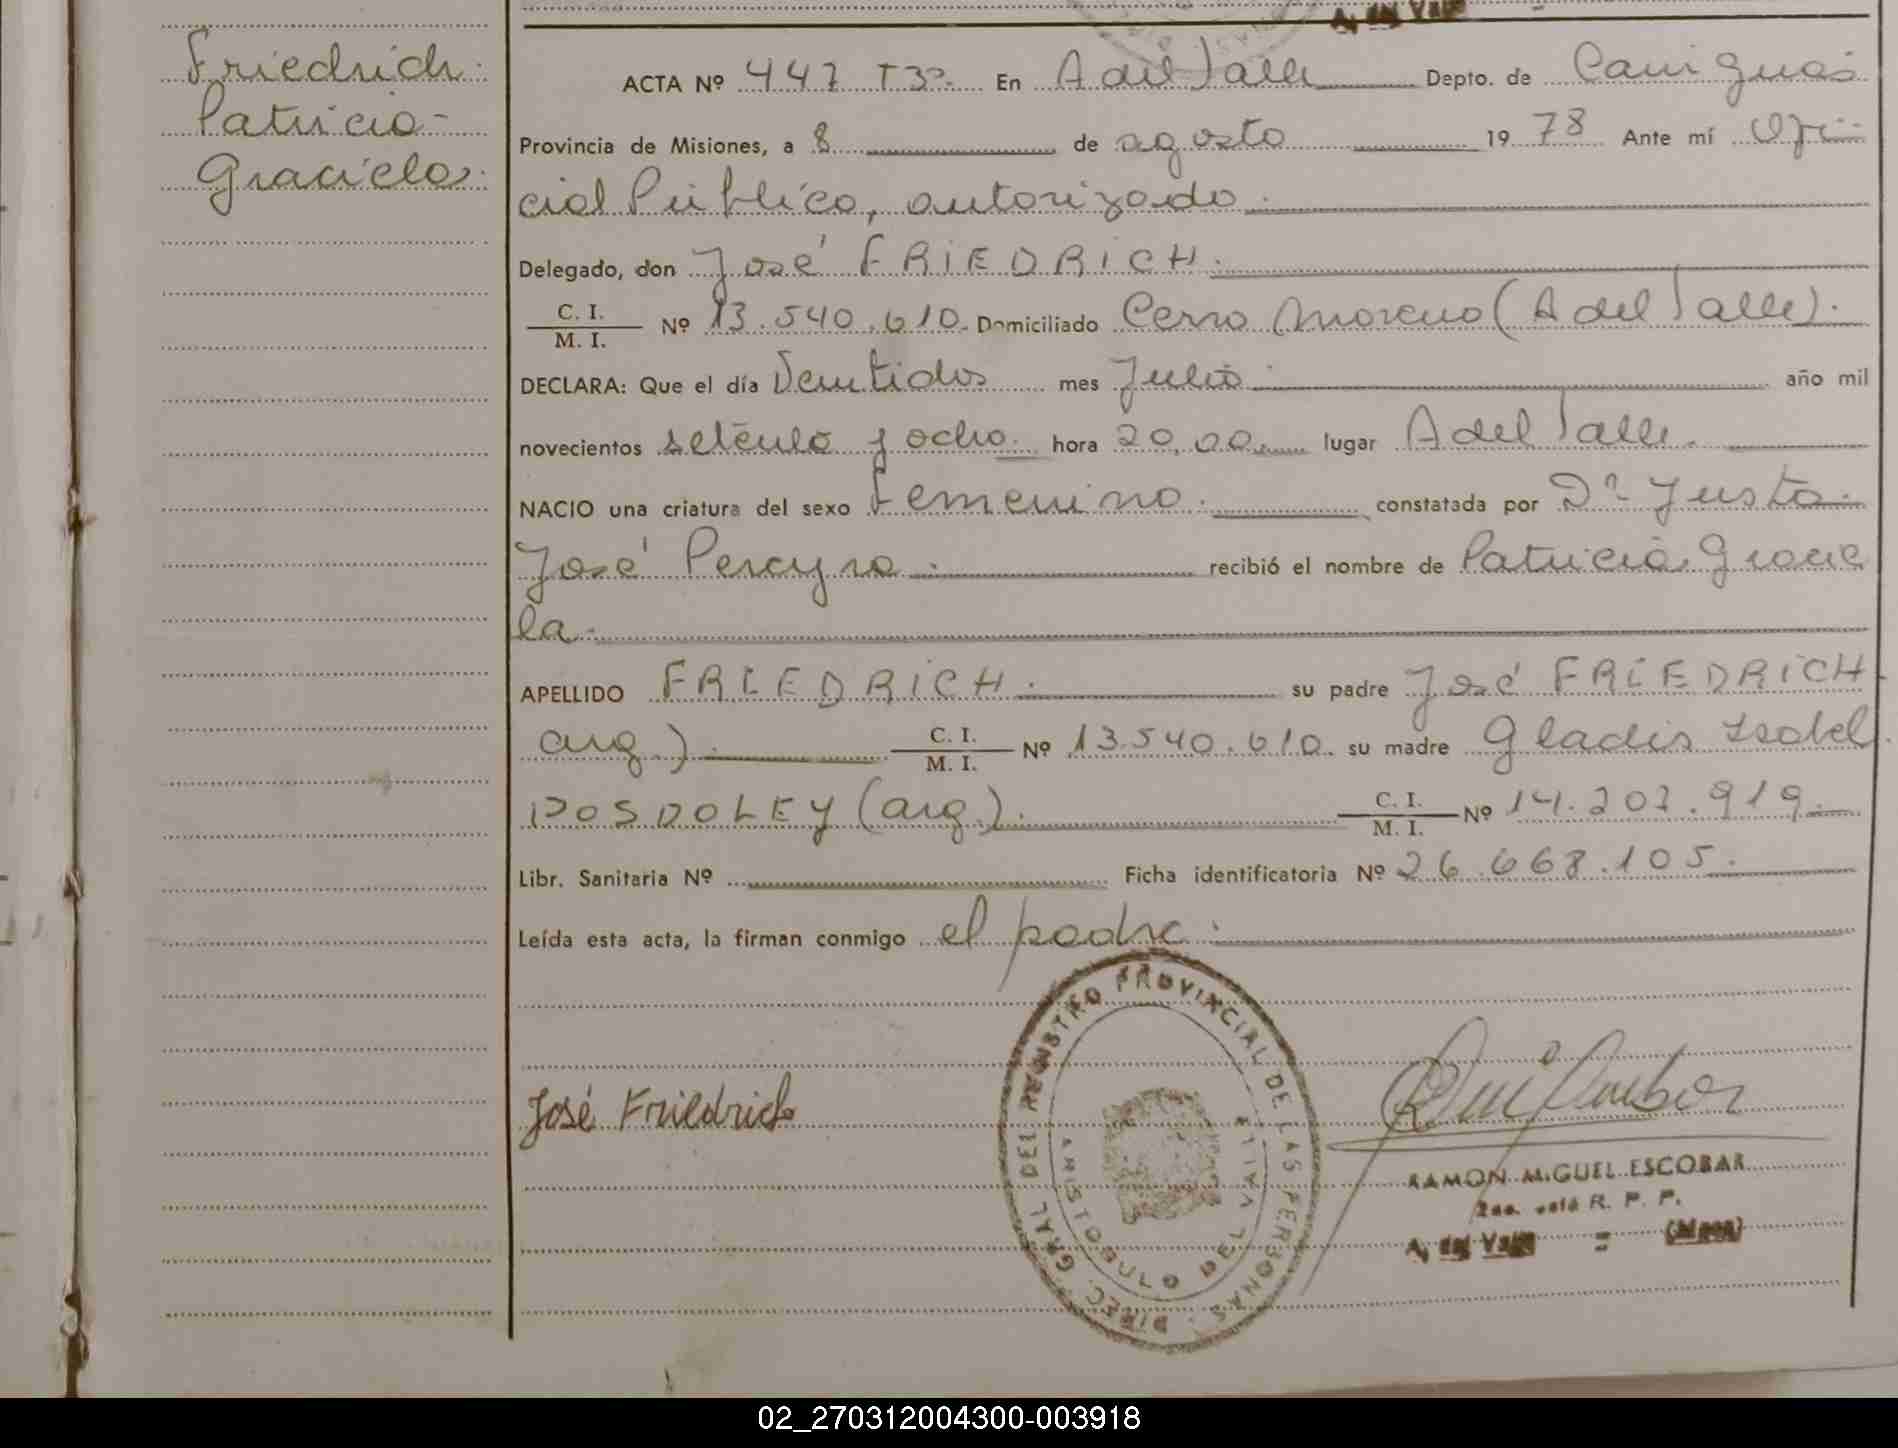 A. del Valle =
Friedrich
Patricia-
Graciela.
ACTA Nº 447 T3º. En A del Valle Depto. de Cainguas
Provincia de Misiones, a 8 de agosto 1978 Ante mí Ofi
cial Público, autorizado.
Delegado, don José FRIEDRICH.
C. I.
M. I.
Nº 13.540.610. Domiciliado Cerro Moreno (A del Valle).
DECLARA: Que el día Veintidos mes Julio año mil
novecientos setenta y ocho. hora 20,00 lugar A del Valle.
NACIO una criatura del sexo Femenino. constatada por Dª Justa
José Pereyra. recibió el nombre de Patricia Gracie
la.
APELLIDO FRIEDRICH. su padre José FRIEDRICH
arg.). C. I.
M. I.
Nº 13.540.610. su madre Gladis Isabel
POSDOLEY (arg.). C. I.
M. I.
Nº 14.207.919.
Libr. Sanitaria Nº Ficha identificatoria Nº 26.668.105.
Leída esta acta, la firman conmigo el padre.
DIREC. GRAL DEL REGISTRO PROVINCIAL DE LAS PERSONAS
ARISTOBULO DEL VALLE
José Friedrich
RAMON MIGUEL ESCOBAR
R. P. P.
A. del Valle = (Mnes)
02_270312004300-003918